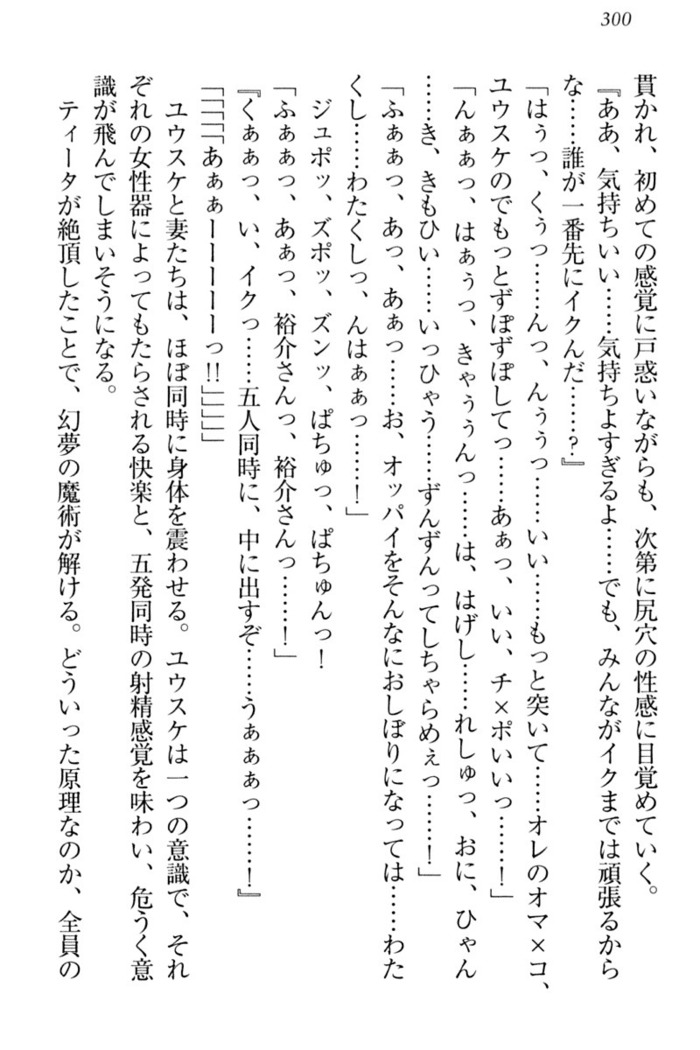 300
貫かれ、初めての感覚に戸惑いながらも、次第に尻穴の性感に目覚めていく。
『ああ、気持ちいい……気持ちよすぎるよ……でも、みんながイクまでは頑張るから
な……誰が一番先にイクんだ……?』
「はぅっ、くぅっ……んっ、んぅぅっ……いい……もっと突いて……オレのオマ×コ、
ユウスケのでもっとずぽずぽしてっ……あぁっ、いい、チ×ポいいっ……!」
「んぁぁっ、はぁぅっ、きゃぅぅんっ……は、はげし……れしゅっ、おに、ひゃん
……き、きもひい……いっひゃう……ずんずんってしちゃらめぇっ……!」
「ふぁぁっ、あっ、あぁっ……お、オッパイをそんなにおしぼりになっては……わた
くし……わたくしっ、んはぁぁっ……!」
ジュポッ、ズポッ、ズンッ、ぱちゅっ、ぱちゅんっ!
「ふぁぁっ、あぁっ、裕介さんっ、裕介さんっ……!」
『くぁぁっ、い、イクっ……五人同時に、中に出すぞ……うぁぁぁっ……!』
「「「「あぁぁーーーーーっ!!」」」」
ユウスケと妻たちは、ほぼ同時に身体を震わせる。ユウスケは一つの意識で、それ
ぞれの女性器によってもたらされる快楽と、五発同時の射精感覚を味わい、危うく意
識が飛んでしまいそうになる。
ティータが絶頂したことで、幻夢の魔術が解ける。どういった原理なのか、全員の